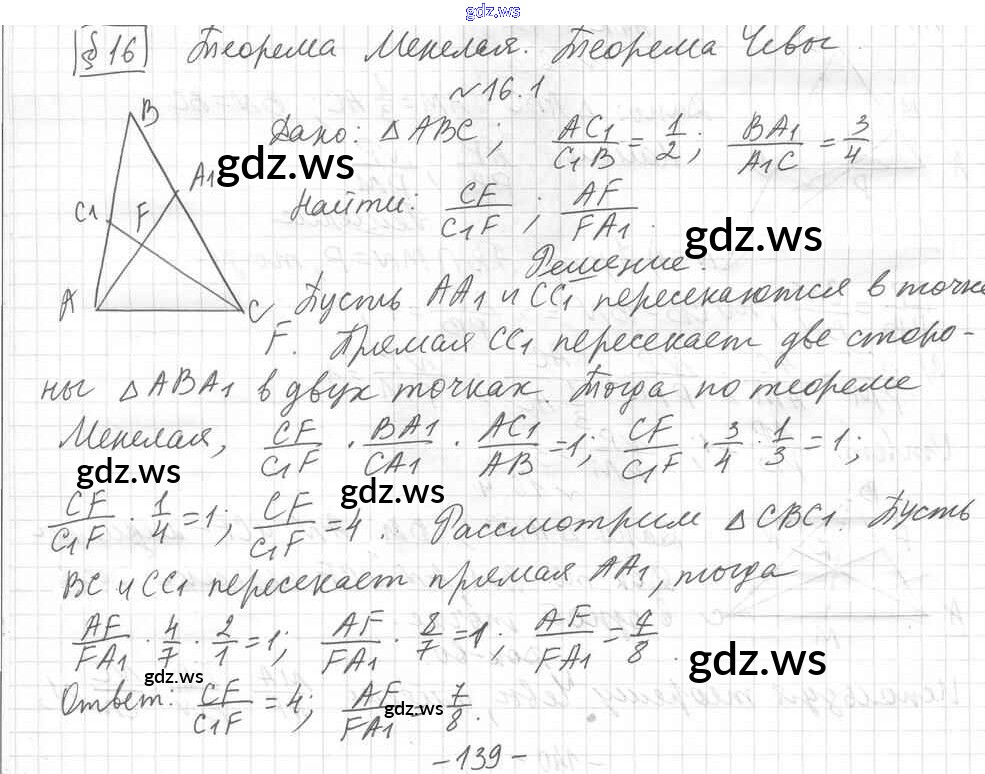 gdz.ws
§ 16 Теорема Менелая. Теорема Чевы
№ 16.1
B
A1
C1
F
A
C
Дано: △ABC; AC1/C1B = 1/2; BA1/A1C = 3/4
gdz.ws
Найти: CF/C1F; AF/FA1.
gdz.ws
Решение:
Пусть AA1 и CC1 пересекаются в точке
F. Прямая CC1 пересекает две сторо-
ны △ABA1 в двух точках. Тогда по теореме
Менелая, CF/C1F · BA1/CA1 · AC1/AB = 1; CF/C1F · 3/4 · 1/3 = 1;
gdz.ws
gdz.ws
CF/C1F · 1/4 = 1; CF/C1F = 4. Рассмотрим △CBC1. Пусть
BC и CC1 пересекает прямая AA1, тогда
AF/FA1 · 4/7 · 2/1 = 1; AF/FA1 · 8/7 = 1; AF/FA1 = 7/8.
gdz.ws
gdz.ws
Ответ: CF/C1F = 4; AF/FA1 = 7/8.
gdz.ws
- 139 -